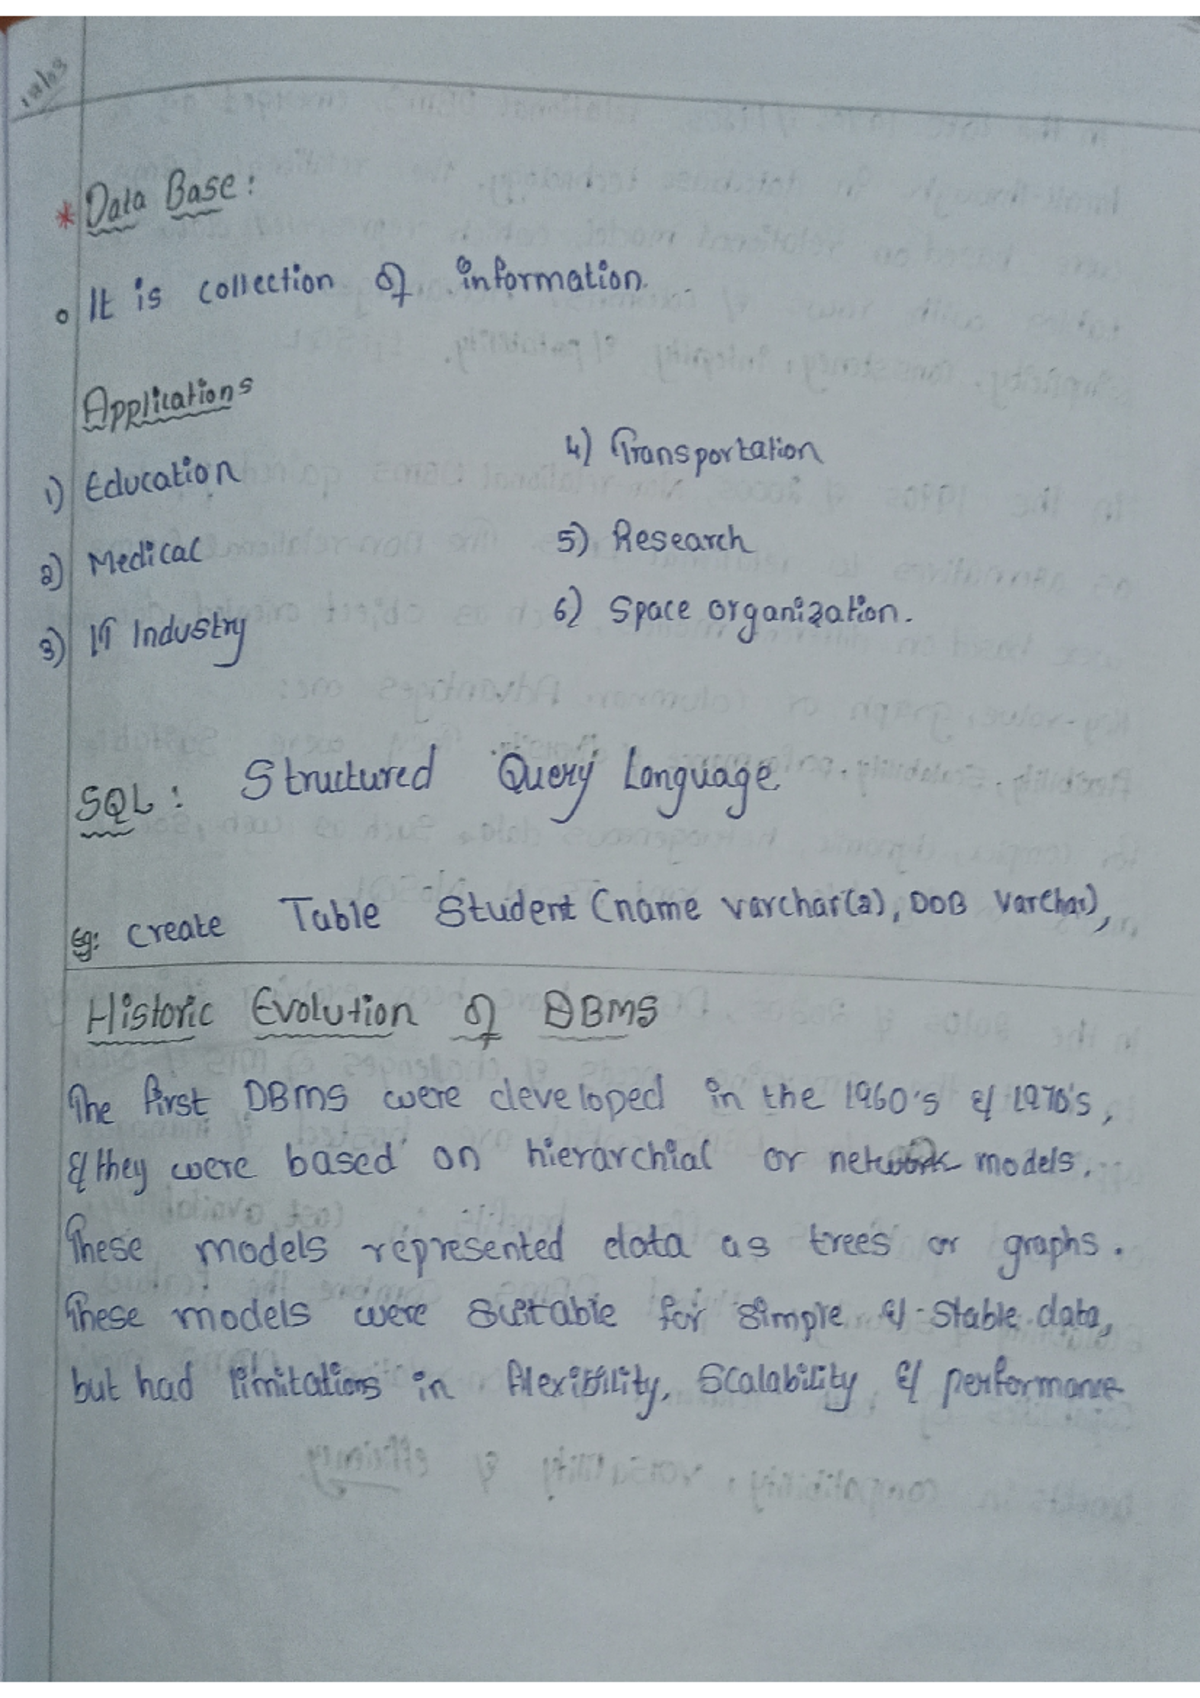 18/03
* Data Base:
o It is collection of information.
Applications
1) Education
2) Medical
3) IT Industry
4) Transportation
5) Research
6) Space organization.
SQL: Structured Query Language
Eg: Create Table Student (name varchar(2), DOB Varchar),
Historic Evolution of DBMS
The first DBMS were developed in the 1960's & 1970's,
& they were based on hierarchial or network models.
These models represented data as trees or graphs.
These models were suitable for simple & stable data,
but had limitations in flexibility, Scalability & performance